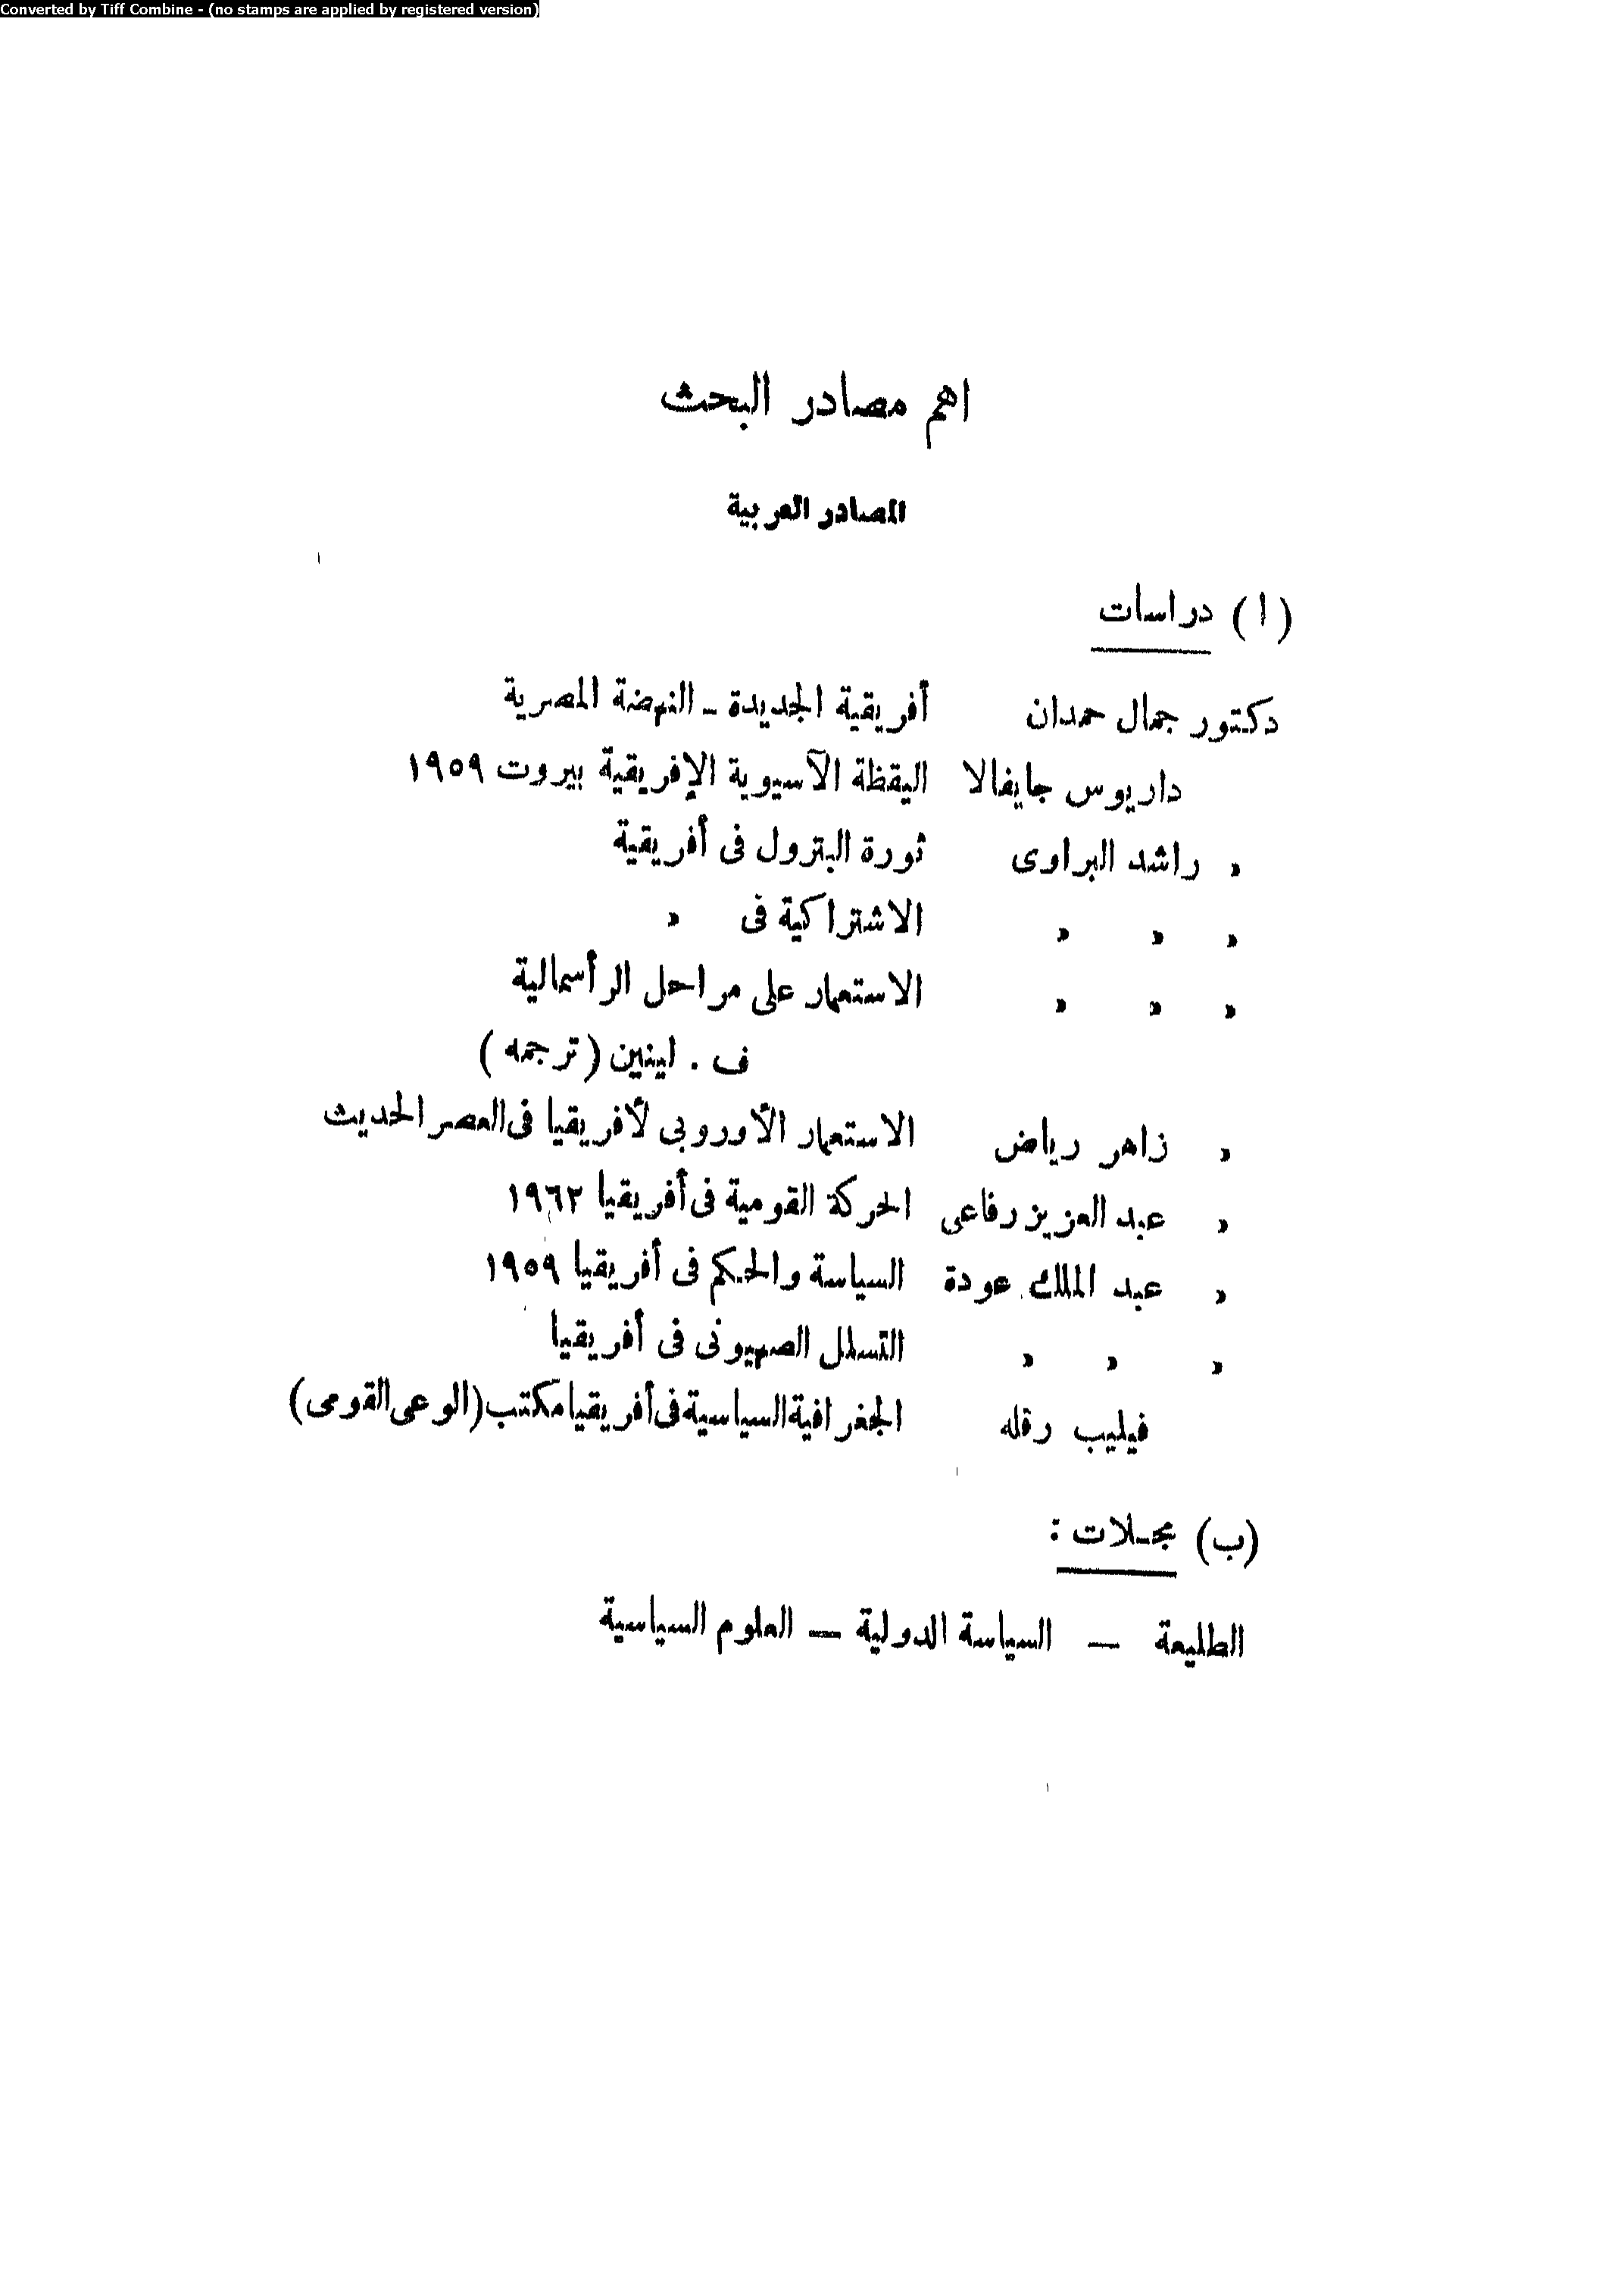 Converted by Tiff Combine - (no stamps are applied by registered version)
اهم مصادر البحث
المصادر العربية
(ا) دراسات
دكتور جمال حمدان أفريقية الجديدة ـ النهضة المصرية
داريوس جايفالا اليقظة الآسيوية الإفريقية بيروت ١٩٥٩
» راشد البراوى ثورة البترول فى أفريقية
» » » الاشتراكية فى »
» » » الاستعمار على مراحل الرأسمالية
ف . لينين (ترجمه)
» زاهر رياض الاستعمار الأوروبى لأفريقيا فى العصر الحديث
» عبد العزيز رفاعى الحركة القومية فى أفريقيا ١٩٦٢
» عبد الملك عودة السياسة والحكم فى أفريقيا ١٩٥٩
» » » التسلل الصهيونى فى أفريقيا
فيليب رفله الجغرافية السياسية فى أفريقيا مكتب (الوعى القومى)
(ب) مجلات :
الطليعة — السياسة الدولية — العلوم السياسية